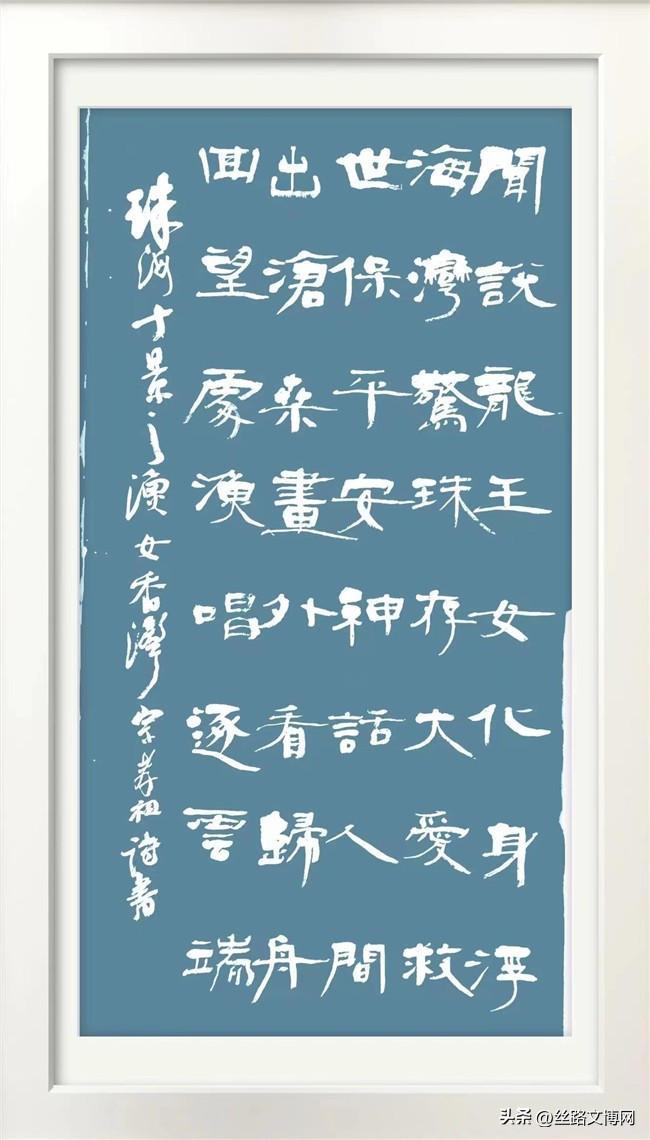 聞說龍王女化身浮
海灣驚珠存大愛救
世保平安神話人間
出滄桒畫外看歸舟
回望處漁唱逐雲端
珠海十景之漁女香灣 宗孝祖詩書
头条 @丝路文博网